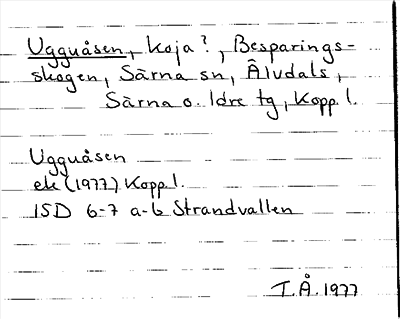 Ugguåsen, Koja?, Besparings-
skogen, Särna sn, Älvdals,
Särna o. Idre tg, Kopp l.
Ugguåsen
ek (1977) Kopp l.
ISD 6-7 a-b Strandvallen
T.Å. 1977